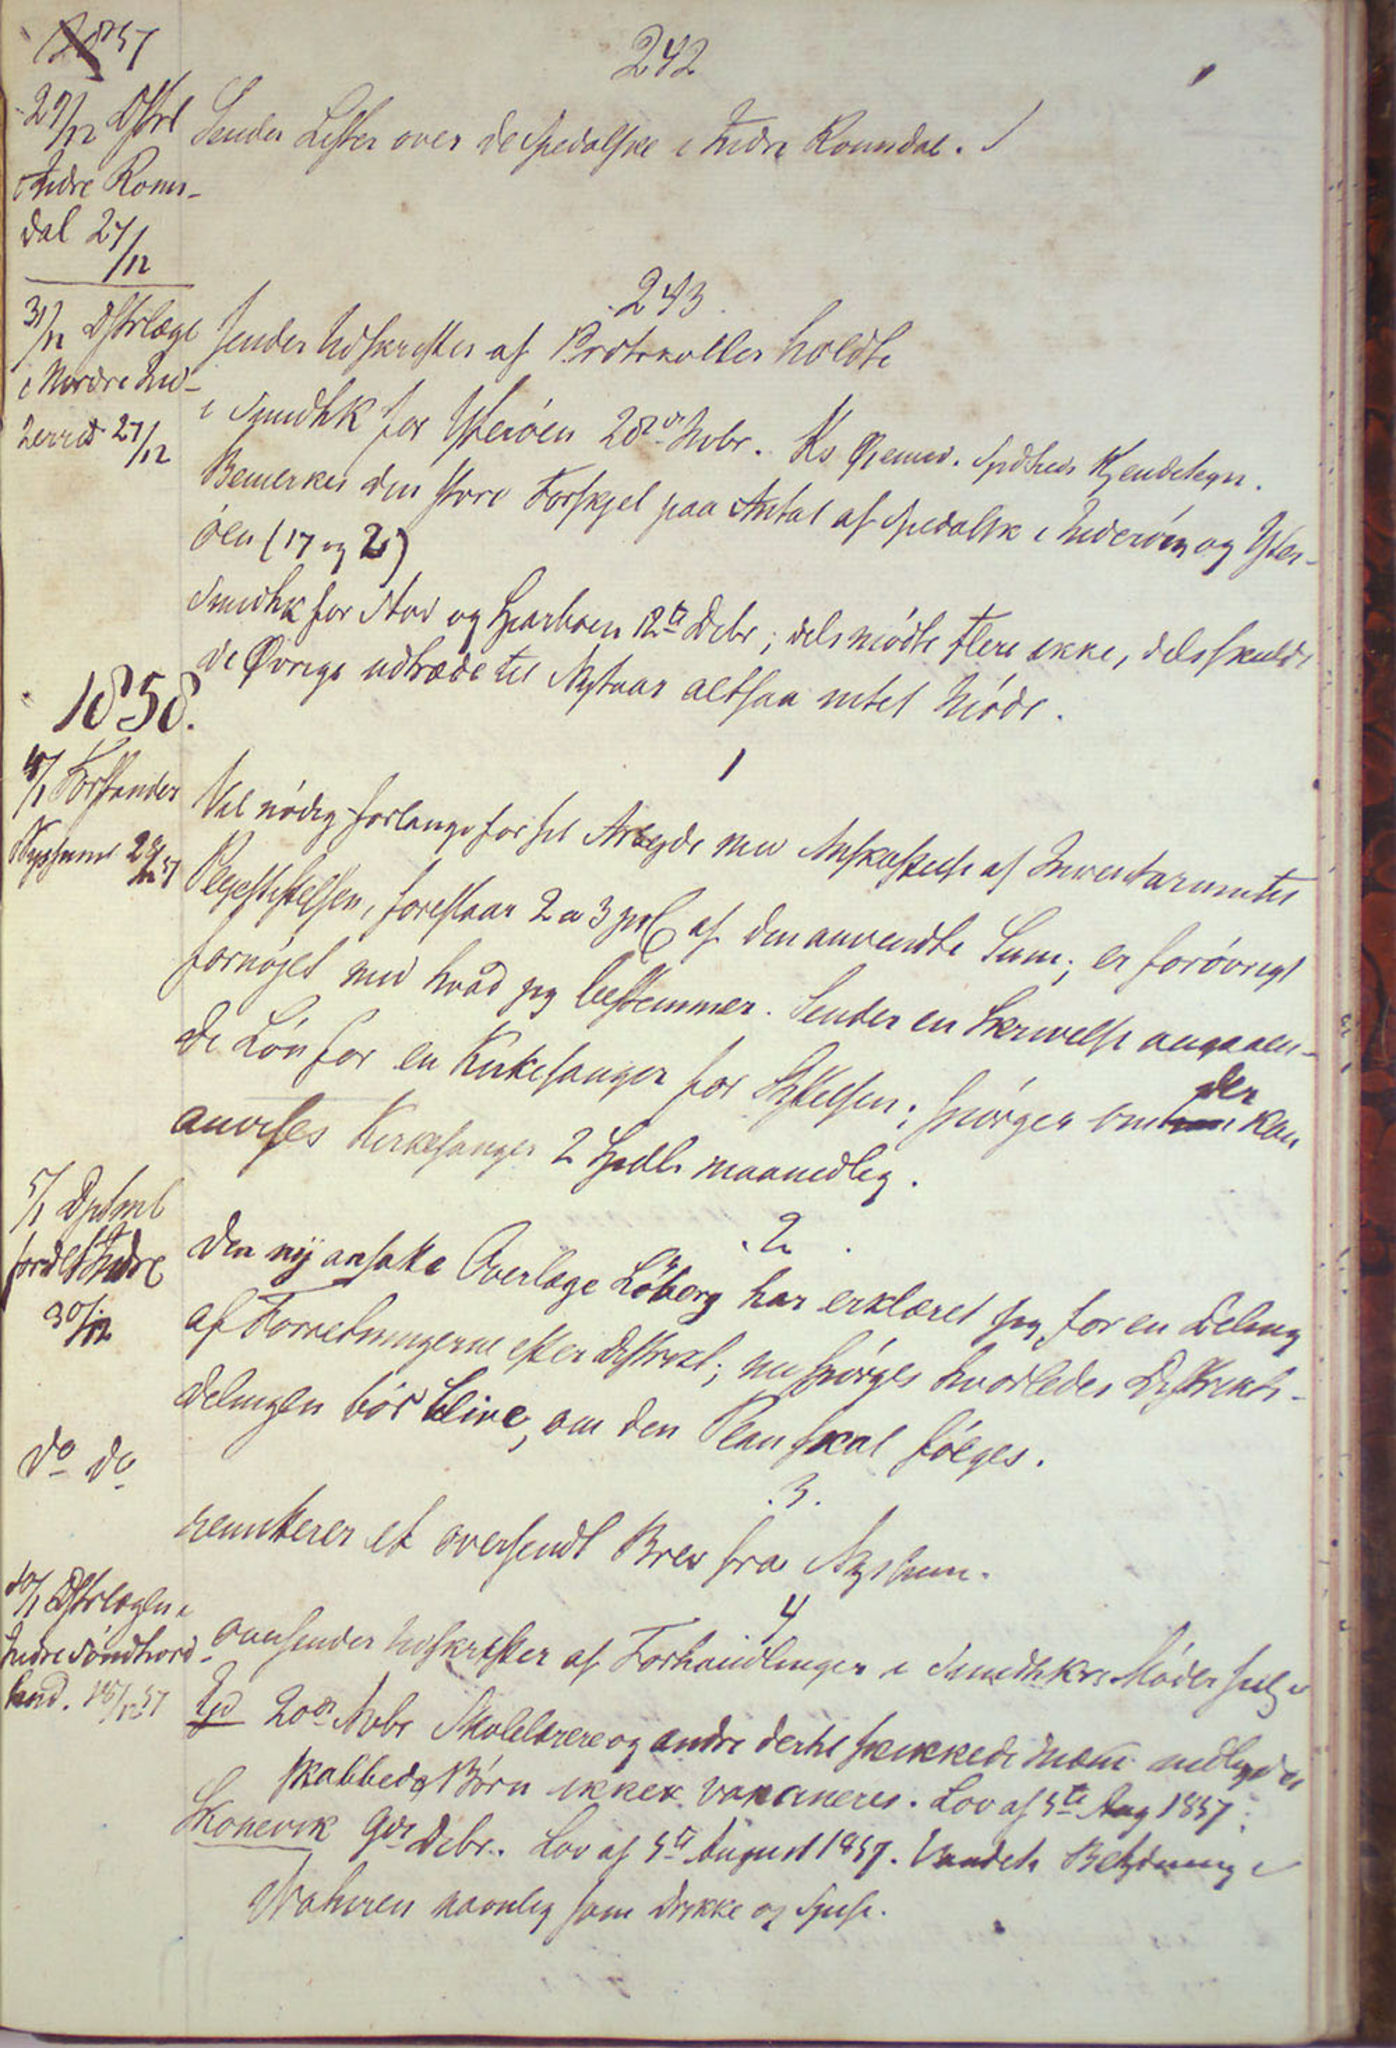 1857
242
29/12 Dstrl
Indre Roms-
dal 27/12
Sender Lister over de spedalske i Indre Romsdal. /
243.
31/12 Dstrlæge
i Nordre Ind-
herred 27/12
sender Udskrifter af Protokoller holdte
i Sundhk for Ytterøen 28de Nvbr. Ks Gjenns. Spdheds Kjendetegn.
Bemerker den store Forskjel paa Antal af spedalsk i Inderøen og Ytter-
öen (17 og 2)
Sundhk for Stod og Sparboen 12te Debr; dels mödte flere ikke, dels skulde
de Øvrige udtræde til Nytaar altsaa intet Möde.
1858.
1
4/1 Forstander
Nyssum 29/12 57
Vil nödig forlange for sit Arbeyde med Anskaffelse af Inventariumet til
Pleyestiftelsen, foreslaar 2 a 3 prC af den anvendte Sum; er forövrigt
fornöjet med hvad jeg bestemmer. Sender en Skrivelse angaaen-
de Lön for en Kirkesanger for Stiftelsen; spörger om der kan
anvises Kirkesanger 2 Spdlr maanedlig.
2.
5/1 Dptml
for det Indre
30/12
Den ny ansatte Overlæge Löberg har erklæret sig for en Deling
af Forretningerne efter Distrikt; nu spörges hvorledes Distrikts-
delingen bör blive, om den Plan skal fölges.
3.
do do
remitterer et oversendt Brev fra Nyssum.
4
10/1 Dstrlægen i
Indre Söndhord-
land. 18/12 57
oversender Udskrifter af Forhandlinger i Sundhks Möder
20de Nvbr Skolelærere og andre dertil skikkede Mænd
skabbede Börn ikke vaccineres. Lov af 5te Aug 1857;
Skonevik 9de Debr. Lov af 5te August 1857. Vandets Betydning i
Naturen navnlig som Drikke og Spise.